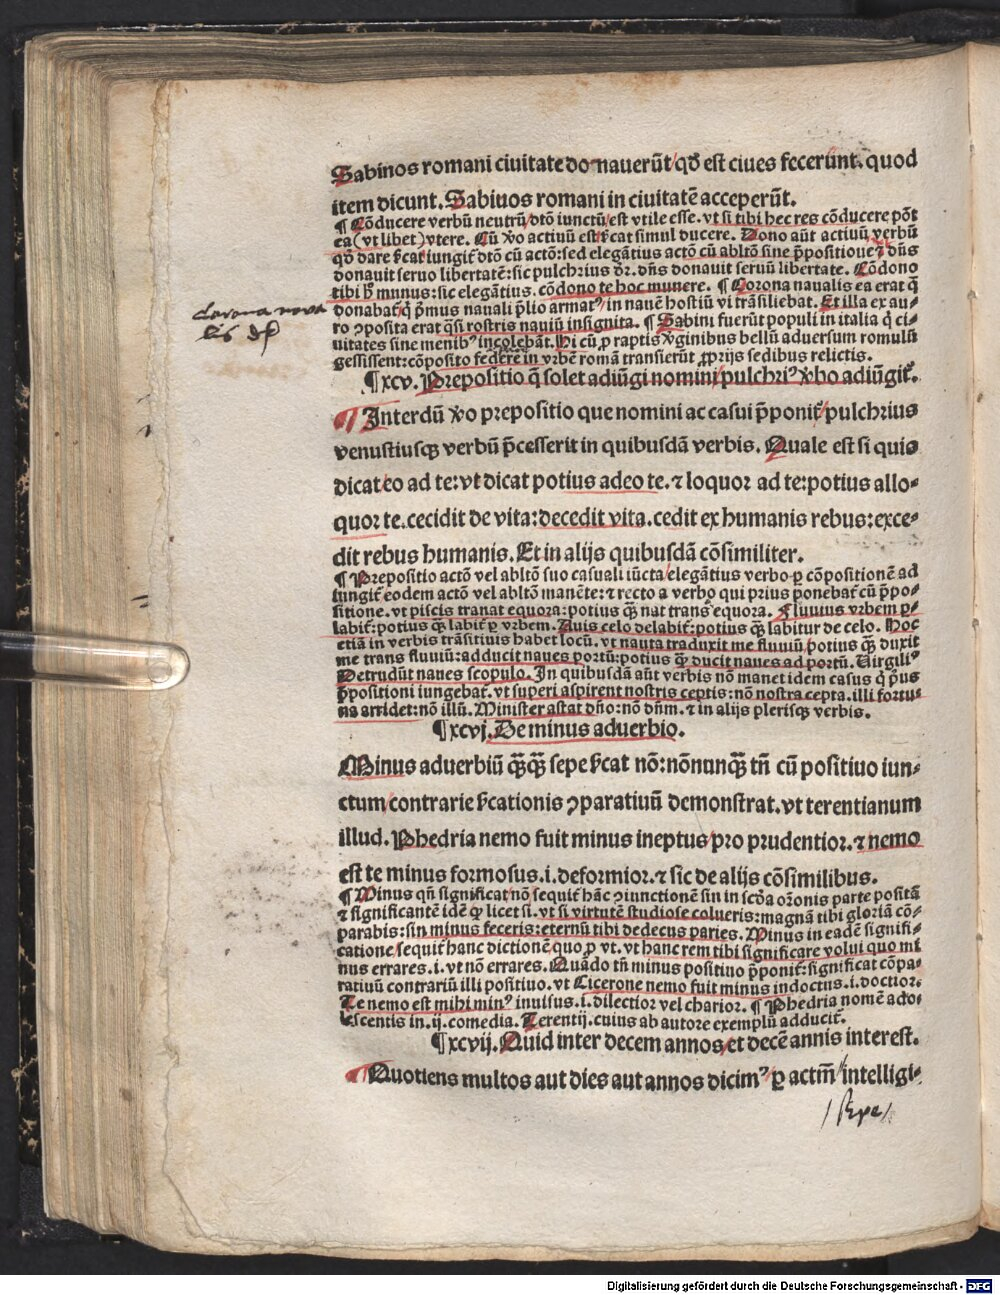 Sabinos romani ciuitate donauerūt/qđ est ciues fecerunt. quod
item dicunt. Sabinos romani in ciuitatē acceperūt.
¶ Cōducere verbū neutrū/dtō iunctū/est vtile esse. vt si tibi hec res cōducere pōt
ea (vt libet) vtere. Cū ꝟo actiuū est/ſıcat simul ducere. Dono aūt actiuū verbū
qđ dare ſıcat iungit̄ dtō cū actō: sed elegātius actō cū abltō sine p̄positione ⁊ dn̄s
donauit seruo libertatē: sic pulchrius dr̄. dn̄s donauit seruū libertate. Cōdono
tibi h̄ munus: sic elegātius. cōdono te hoc munere. ¶ Corona naualis ea erat q̄
donabat̄/q̇ p̄mus nauali p̄lio armatꝰ/in nauē hostiū vi trāsiliebat. Et illa ex au⸗
ro ꝯposita erat q̄si rostris nauiū insignita. ¶ Sabini fuerūt populi in italia q̇ ci⸗
uitates sine menibꝰ incolebāt. Hi cū ꝓ raptis ꝟginibus bellū aduersum romulū
gessissent: cōposito federe in vrbē romā transierūt ꝓprijs sedibus relictis.
¶xcv. Prepositio q̄ solet adiūgi nomini/pulchriꝰ ꝟbo adiūgit̄.
¶ Interdū ꝟo prepositio que nomini ac casui p̄ponit̄/pulchrius
venustiusqꝫ verbū p̄cesserit in quibusdā verbis. Quale est si quis
dicat/eo ad te: vt dicat potius adeo te. ⁊ loquor ad te: potius allo⸗
quor te. cecidit de vita: decedit vita. cedit ex humanis rebus: exce⸗
dit rebus humanis. Et in alijs quibusdā cōsimiliter.
¶ Prepositio actō vel abltō suo casuali iūcta/elegātius verbo ꝑ cōpositionē ad
iungit̄ eodem actō vel abltō manēte: ⁊ recto a verbo qui prius ponebat̄ cū p̄po⸗
sitione. vt piscis tranat equora: potius qꝫ nat trans equora. Fluuius vrbem p⸗
labit̄: potius qꝫ labit̄ ꝑ vrbem. Auis celo delabit̄: potius qꝫ labitur de celo. Hoc
etiā in verbis trāsitiuis habet locū. vt nauta traduxit me fluuiū/potius qꝫ duxit
me trans fluuiū: adducit naues portū: potius qꝫ ducit naues ad portū. Uirgiliꝰ
Detrudūt naues scopulo. In quibusdā aūt verbis nō manet idem casus q̇ p̄us
p̄positioni iungebat̄. vt superi aspirent nostris ceptis: nō nostra cepta. illi fortu⸗
na arridet: nō illū. Minister astat dn̄o: nō dn̄m. ⁊ in alijs plerisqꝫ verbis.
¶xcvj. De minus aduerbio.
Minus aduerbiū qꝫqꝫ sepe ſıcat nō: nōnunqꝫ tn̄ cū positiuo iun⸗
ctum/contrarie ſıcationis ꝯparatiuū demonstrat. vt terentianum
illud. Phedria nemo fuit minus ineptus/pro prudentior. ⁊ nemo
est te minus formosus .i. deformior. ⁊ sic de alijs cōsimilibus.
¶ Minus qn̄ significat/nō sequit̄ hāc ꝯiunctionē sin in scđa or̄onis parte positā
⁊ significantē idē qđ licet si. vt si virtutē studiose colueris: magnā tibi gloriā cō⸗
parabis: sin minus feceris: eternū tibi dedecus paries. Minus in eadē signifi⸗
catione/sequit̄ hanc dictionē quo ꝓ vt. vt hanc rem tibi significare volui quo mi
nus errares .i. vt nō errares. Quādo tn̄ minus positiuo p̄ponit̄: significat cōpa⸗
ratiuū contrariū illi positiuo. vt Cicerone nemo fuit minus indoctus .i. doctior.
Te nemo est mihi minꝰ inuisus .i. dilectior vel charior. ¶ Phedria nomē ado⸗
lescentis in .ij. comedia. Terentij. cuius ab autore exemplū adducit̄.
¶xcvij. Quid inter decem annos/et decē annis interest.
¶ Quotiens multos aut dies aut annos dicimꝰ/ꝑ actm̄/intelligi⸗
Digitalisierung gefördert durch die Deutsche Forschungsgemeinschaft - DFG